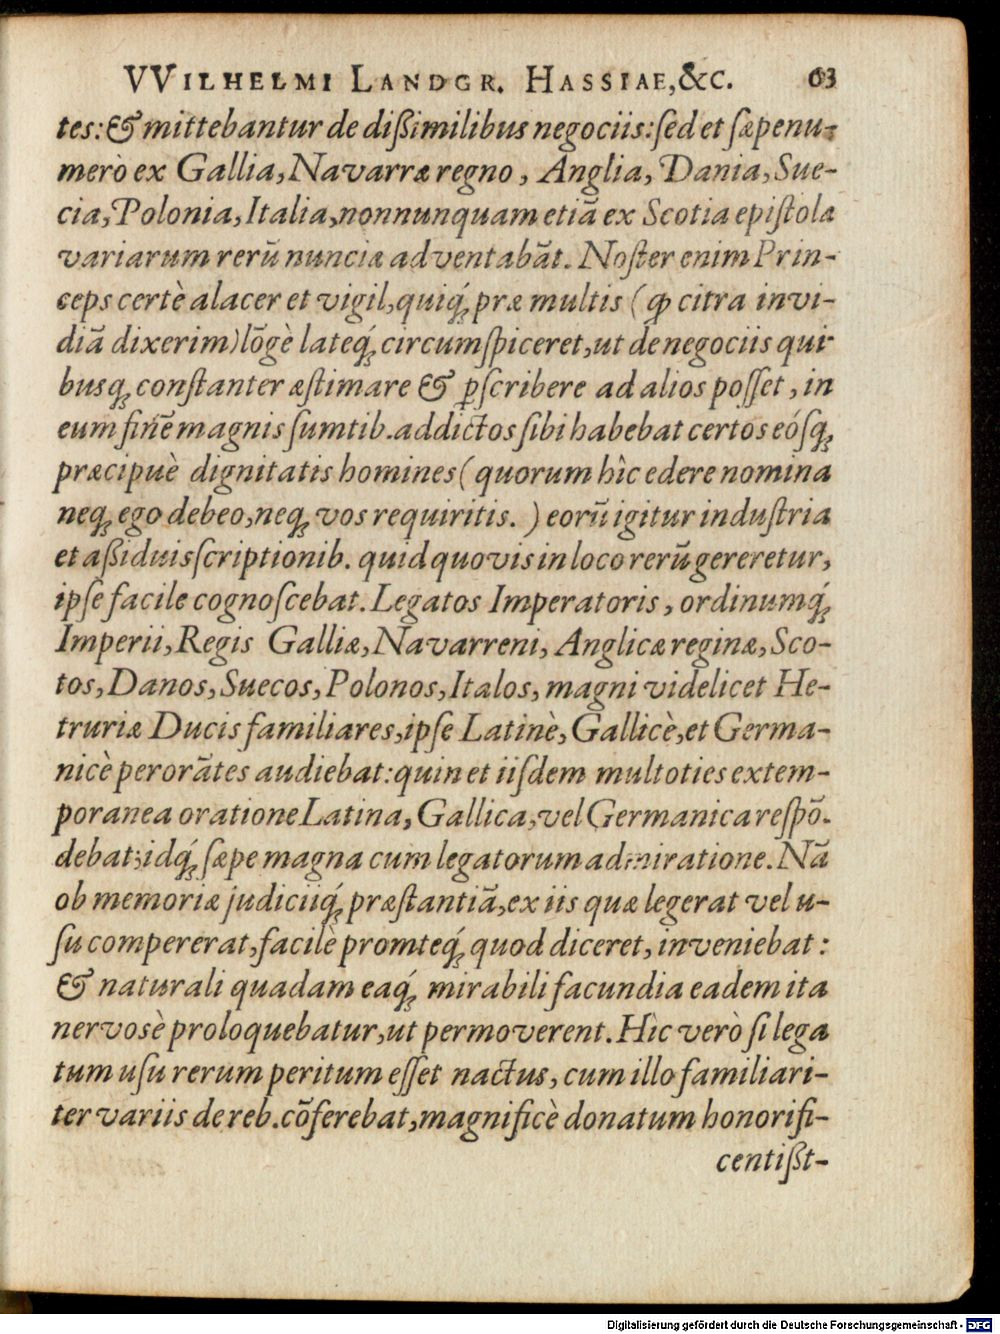 VVILHELMI LANDGR. HASSIAE,&C. 63
tes:& mittebantur de dißimilibus negociis:ſed et ſæpenu-
merò ex Gallia,Navarræ regno, Anglia, Dania,Sue-
cia,Polonia,Italia,nonnunquam etiā ex Scotia epiſtolæ
variarum rerū nunciæ adventabāt. Noſter enim Prin-
ceps certè alacer et vigil,quiq́ꝫ præ multis (ꝙ citra invi-
diā dixerim)lōgè lateq́ꝫ circumſpiceret,ut de negociis qui-
busqꝫ conſtanter æſtimare & ꝑſcribere ad alios poſſet, in
eum finē magnis ſumtib. addictos ſibi habebat certos eóſqꝫ
præcipuè dignitatis homines (quorum hìc edere nomina
neqꝫ ego debeo,neqꝫ vos requiritis. ) eorū igitur induſtria
et aßiduis ſcriptionib. quid quovis in loco rerū gereretur,
ipſe facile cognoſcebat. Legatos Imperatoris, ordinumq́ꝫ
Imperii,Regis Galliæ,Navarreni, Anglicæ reginæ,Sco-
tos,Danos,Suecos,Polonos,Italos, magni videlicet He-
truriæ Ducis familiares,ipſe Latinè,Gallicè,et Germa-
nicè perorātes audiebat:quin et iiſdem multoties extem-
poranea oratione Latina, Gallica,vel Germanica reſpō-
debat:idq́ꝫ ſæpe magna cum legatorum admiratione. Nā
ob memoriæ judiciiq́ꝫ præſtantiā,ex iis quæ legerat vel u-
ſu compererat,facilè promteq́ꝫ quod diceret, inveniebat :
& naturali quadam eaq́ꝫ mirabili facundia eadem ita
nervosè proloquebatur,ut permoverent. Hìc verò ſi lega
tum uſu rerum peritum eſſet nactus, cum illo familiari-
ter variis de reb. cōferebat,magnificè donatum honorifi-
centißi-
Digitalisierung gefördert durch die Deutsche Forschungsgemeinschaft - DFG